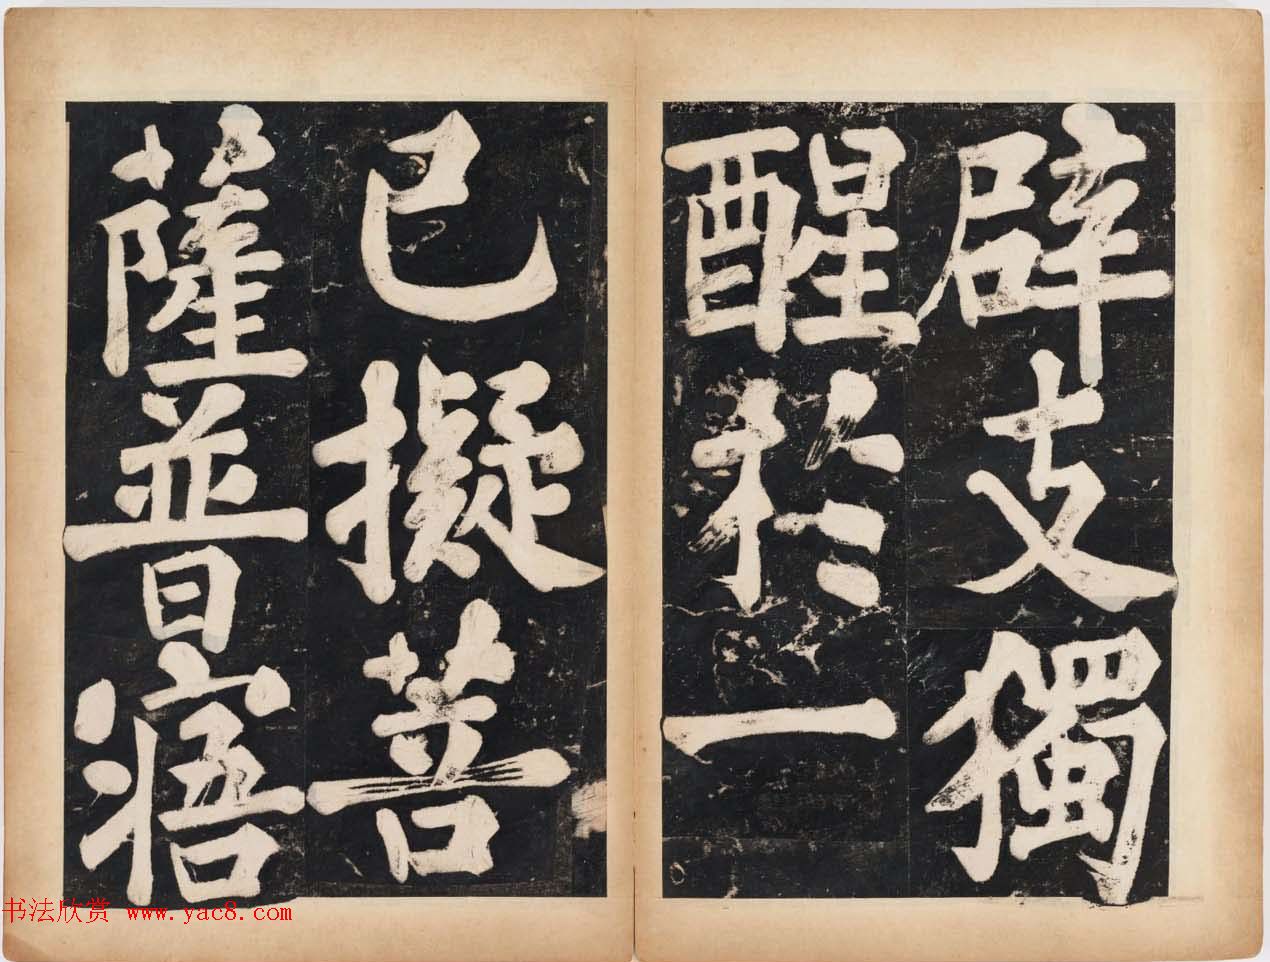 辟支獨
醒於一
已擬菩
薩並普寤
书法欣赏 www.yac8.com